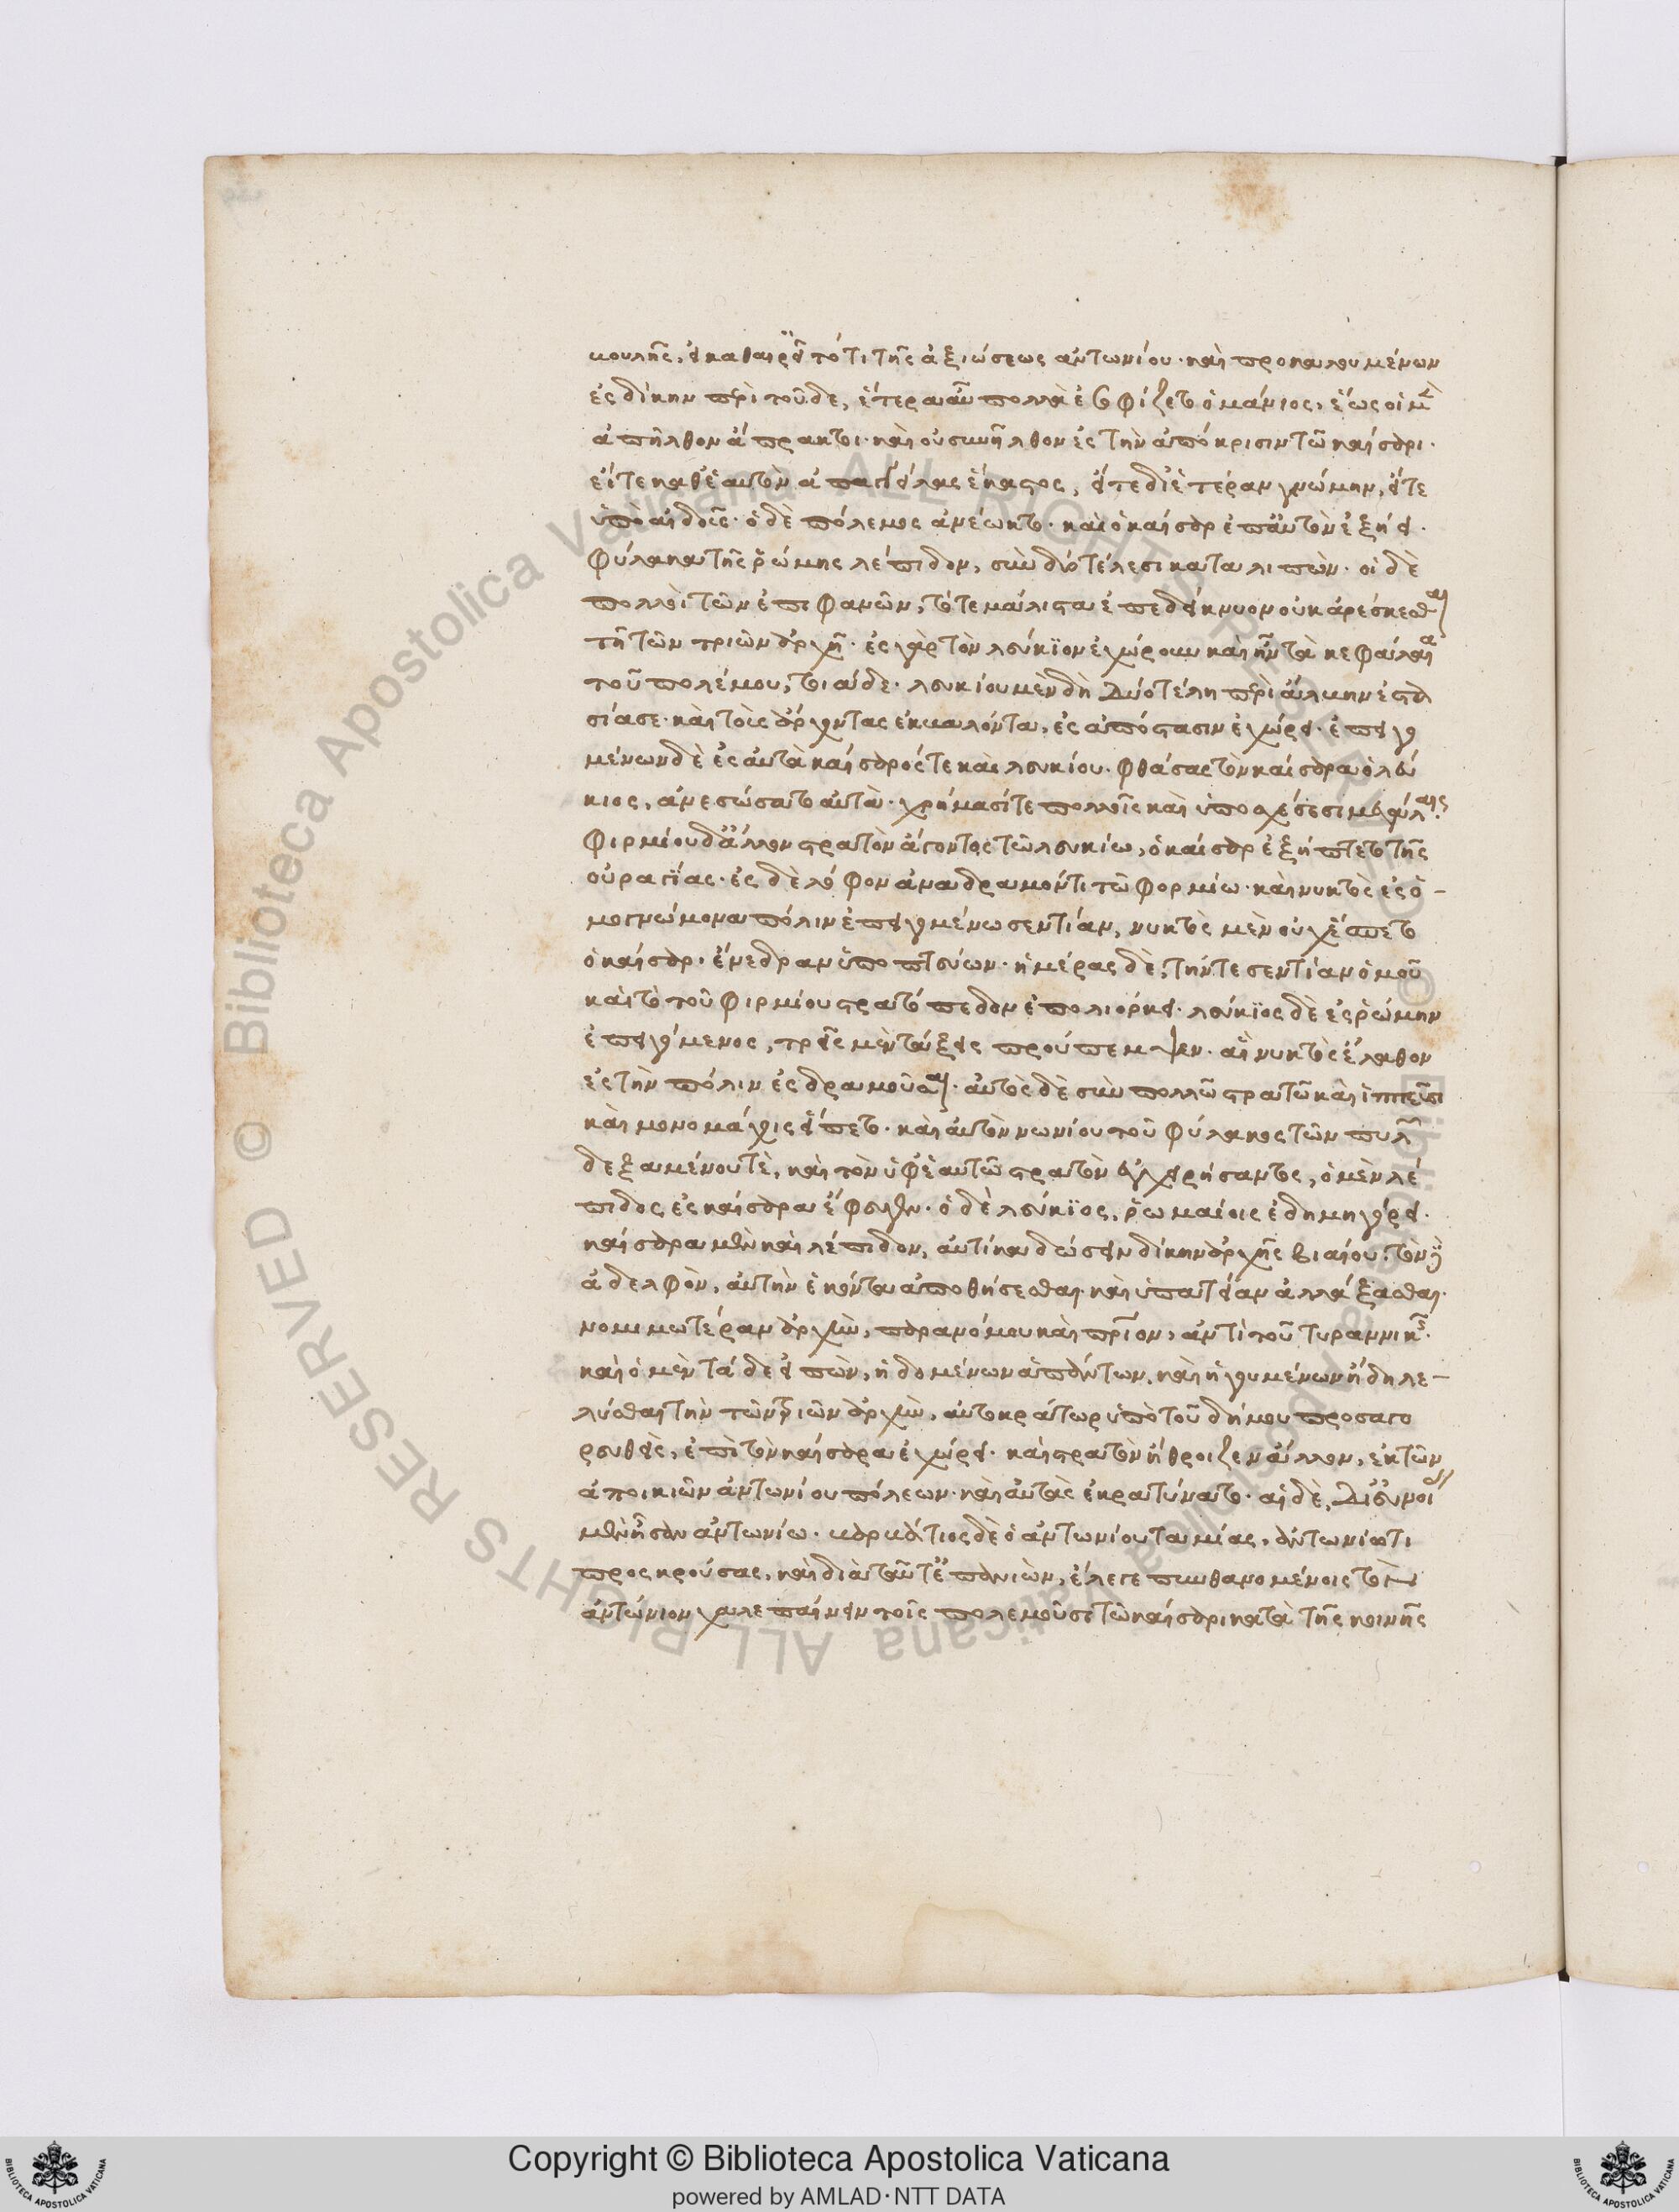 βουλῆς, εἰ καθαιρεῖ τό τι τῆς ἀξιώσεως ἀντωνίου· καὶ προκαλουμένων
ἐς δίκην περὶ τοῦδε, ἕτερα αὖ πολλὰ ἐσοφίζετο ὁ μάνιος, ἕως οἱ μὲν
ἀπῆλθον ἄπρακτοι· καὶ οὐ συνῆλθον ἐς τὴν ἀπόκρισιν τῶ καίσαρι·
εἴτε καθ' ἑαυτὸν ἀπαγγείλας ἕκαστος, εἴτε δι' ἑτέραν γνώμην, εἴτε
ὑπὸ αἰδοῦς· ὁ δὲ πόλεμος ἀνέωκτο· καὶ ὁ καῖσαρ ἐπ' αὐτὸν ἐξῄει·
φύλακα τῆς ῥώμης λέπιδον, σὺν δύο τέλεσι καταλιπὼν· οἱ δὲ
πολλοὶ τῶν ἐπιφανῶν, τότε μάλιστα ἐπεδείκνυον οὐκ ἀρέσκεσθαι
τῇ τῶν τριῶν ἀρχῇ· ἐς γὰρ τὸν λεύκϊον ἐχώρουν καὶ ἦν τὰ κεφάλαια
τοῦ πολέμου, τοιάδε· λευκίου μὲν δὴ δύο τέλη περὶ ἄλβην ἐστα
σίασε· καὶ τοὺς ἄρχοντας ἐκβαλόντα, ἐς ἀπόστασιν ἐχώρει· ἐπειγο
μένων δὲ ἐς αὐτὰ καίσαρός τε καὶ λευκίου· φθάσας τὸν καίσαρα ὁ λεύ
κιος, ἀνεσώσατο αὐτὰ· χρήμασί τε πολλοῖς καὶ ὑποσχέσεσι μεγάλαις·
φιρμίου δ' ἄλλον στρατὸν ἄγοντος τῶ λευκίω, ὁ καῖσαρ ἐξήπτετο τῆς
οὐραγίας· ἐς δὲ λόφον ἀναδραμόντι τῶ φορμίω· καὶ νυκτὸς ἐς ὁ-
μογνώμονα πόλιν ἐπειγομένω σεντίαν, νυκτὸς μὲν οὐχ ἕσπετο
ὁ καῖσαρ· ἐνέδραν ὑποπτεύων· ἡμέρας δὲ, τήν τε σεντίαν ὁμοῦ
καὶ τὸ τοῦ φιρμίου στρατόπεδον ἐπολιόρκει· λεύκϊος δὲ ἐς ῥώμην
ἐπειγόμενος, τρεῖς μὲν τάξεις προύπεμψεν· αἳ νυκτὸς ἔλαθον
ἐς τὴν πόλιν ἐσδραμοῦσαι· αὐτὸς δὲ σὺν πολλῶ στρατῶ καὶ ἱππεῦσι
καὶ μονομάχοις εἵπετο· καὶ αὐτὸν νωνίου τοῦ φύλακος τῶν πυλῶν
δεξαμένου τὲ, καὶ τὸν ὑφ' ἑαυτῶ στρατὸν ἐγχειρήσαντος, ὁ μὲν λέ
πιδος ἐς καίσαρα ἔφευγεν· ὁ δὲ λεύκϊος, ῥωμαίοις ἐδημηγόρει·
καίσαρα μὲν καὶ λέπιδον, αὐτίκα δώσειν δίκην ἀρχῆς βιαίου· τὸν δὲ
ἀδελφὸν, αὐτὴν ἑκόντα ἀποθήσεσθαι· καὶ ὑπατείαν ἀλλάξασθαι·
νομιμωτέραν ἀρχὴν, παρανόμου καὶ πάτριον, ἀντὶ τοῦ τυραννικῆς·
καὶ ὁ μὲν τάδε εἰπὼν, ἡδομένων ἁπάντων, καὶ ἡγουμένων ἤδη λε-
λύσθαι τὴν τῶν τριῶν ἀρχὴν, αὐτοκράτωρ ὑπὸ τοῦ δήμου προσαγο
ρευθεὶς, ἐπὶ τὸν καίσαρα ἐχώρει· καὶ στρατὸν ἤθροιζεν ἄλλον, ἐκ τῶν
ἀποικιῶν ἀντωνίου πόλεων· καὶ αὐτὰς ἐκρατύνατο· αἱ δὲ, δι' εὔνοιας
μὲν ἦσαν ἀντωνίω· βαρβάτιος δὲ ὁ ἀντωνίου ταμίας, ἀντωνίω τι
προσκρούσας, καὶ διὰ ταῦτ' ἐπανιὼν, ἔλεγε πυνθανομένοις τὸν
ἀντώνιον χαλεπαίνειν τοῖς πολεμοῦσι τῶ καίσαρι κατὰ τῆς κοινῆς